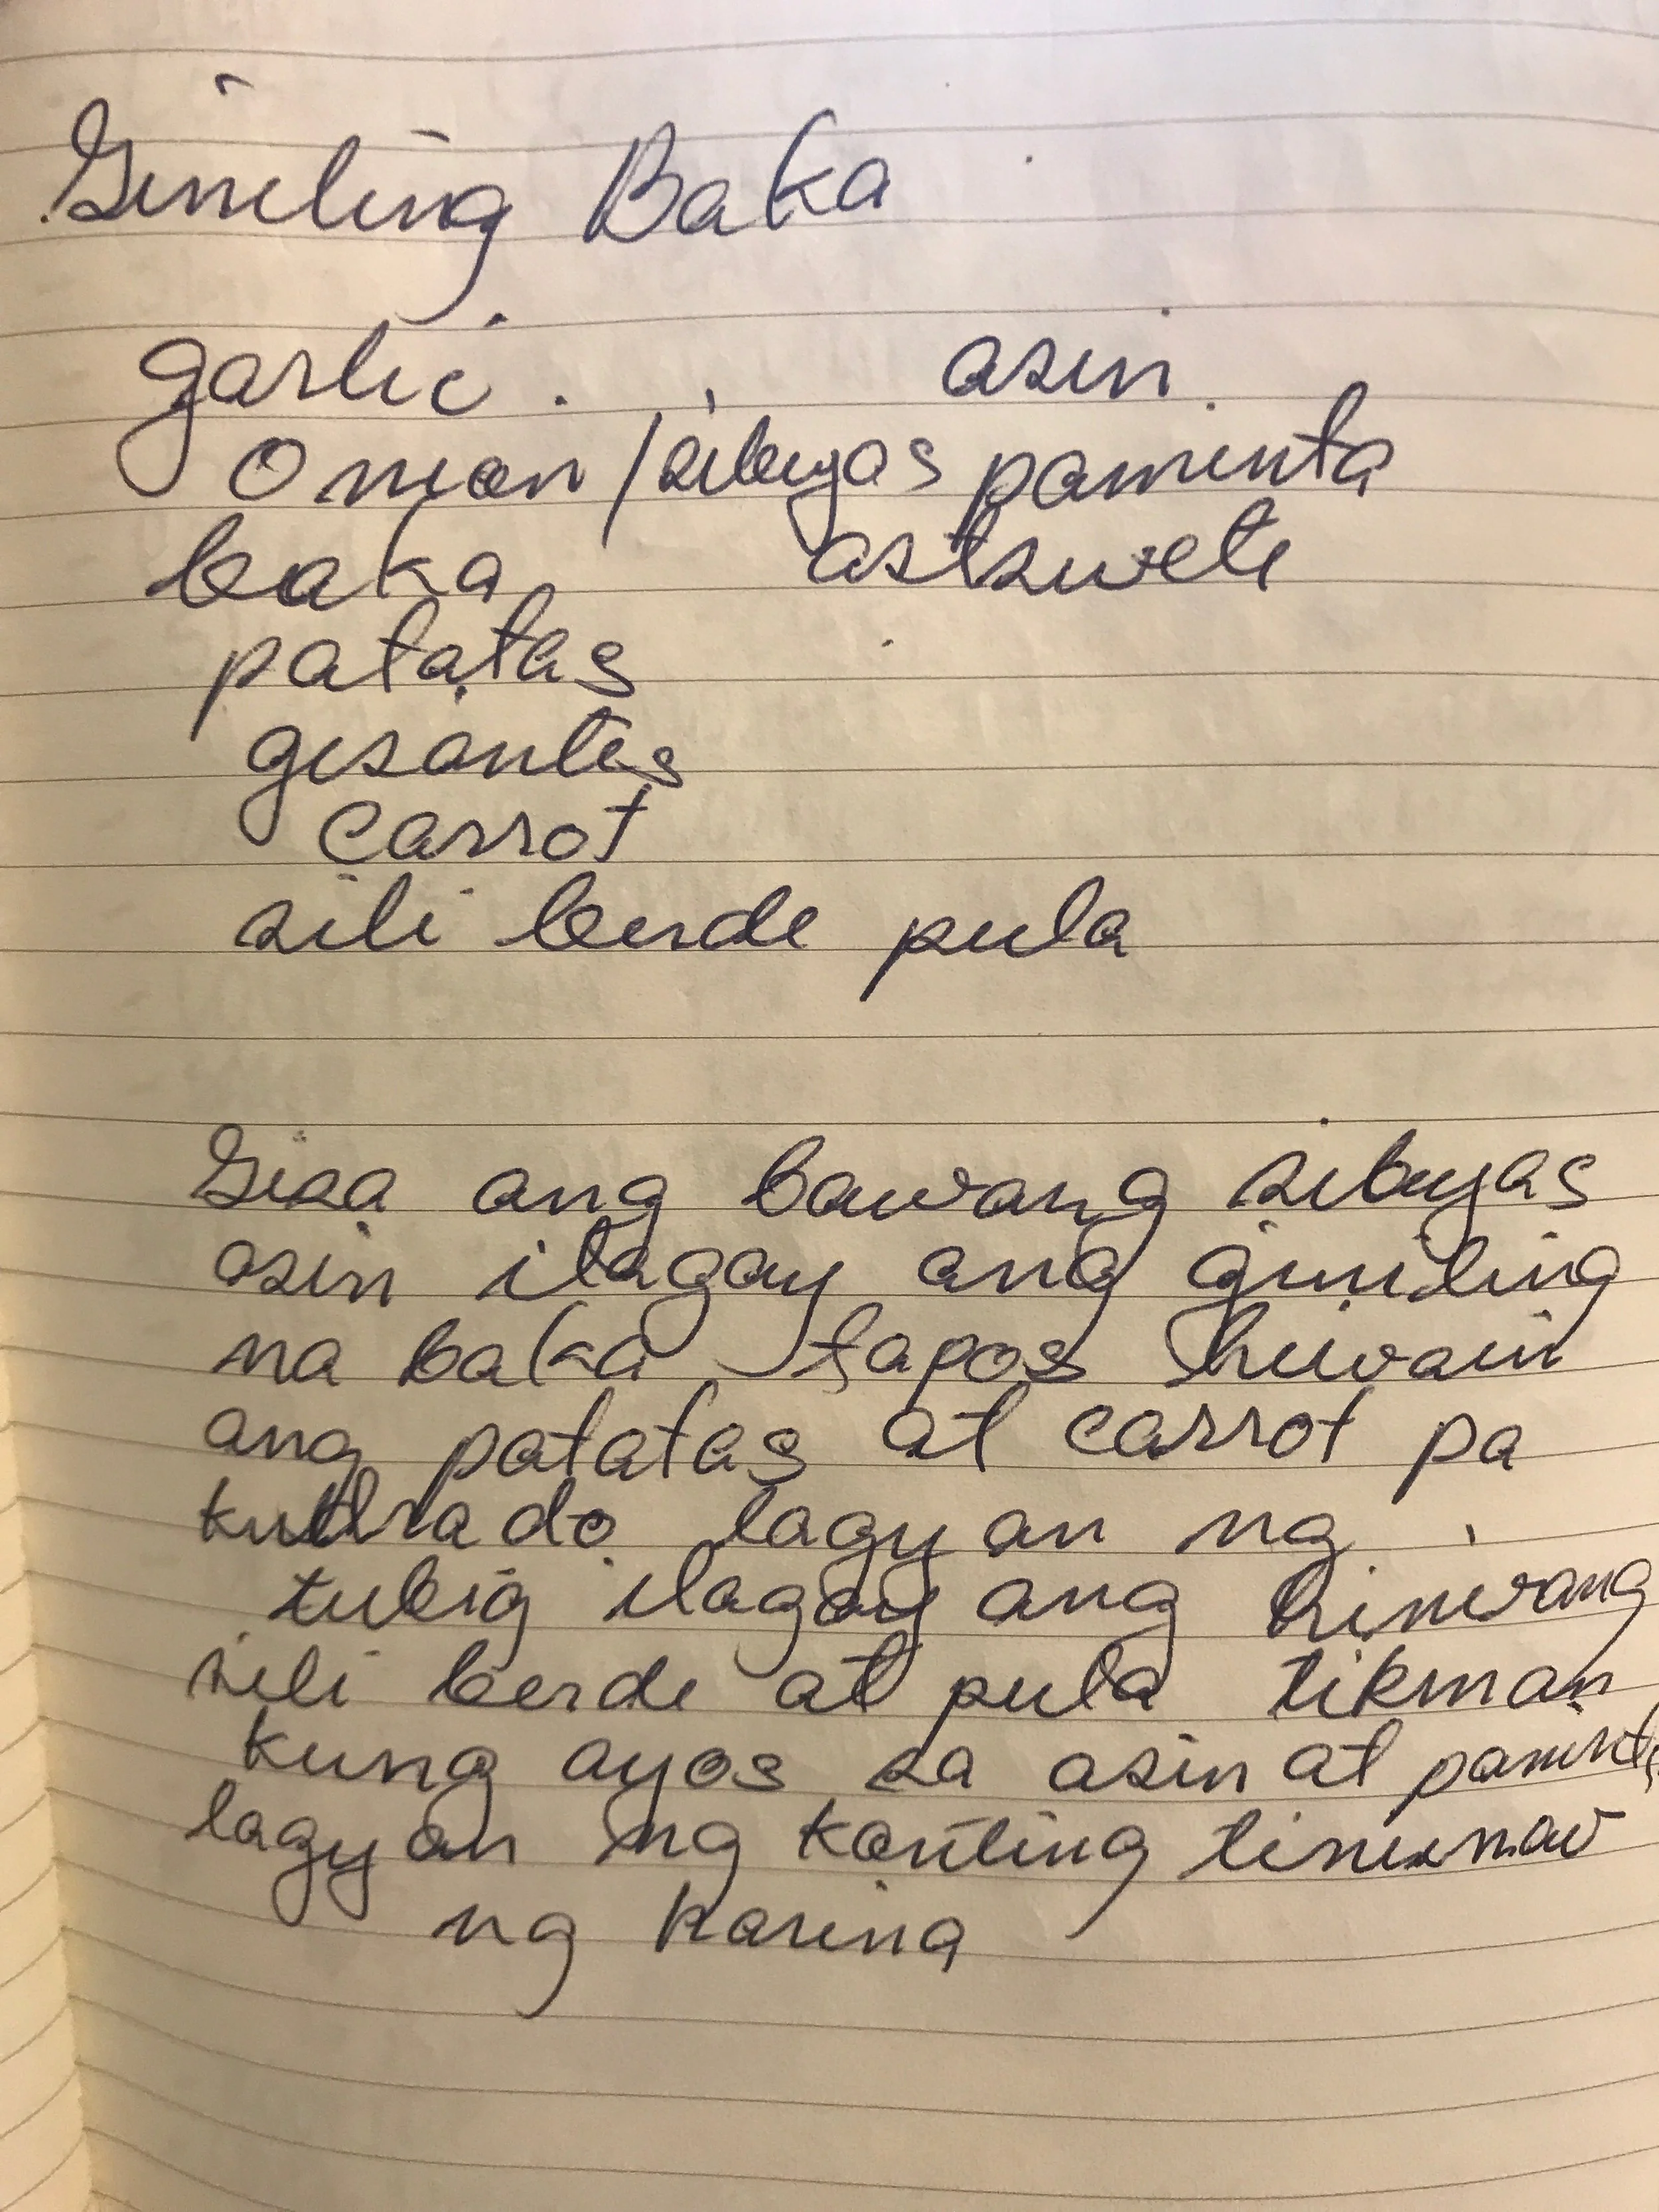 Gineling Baka
garlic. asin
onion/sibuyas paminta
baka astswete
patatas
gisantes
carrot
sili berde pula
Gisa ang bawang sibuyas
asin ilagay ang giniling
na baka tapos hiwain
ang patatas at carrot pa
kudrado lagyan ng
tubig ilagay ang hiniwang
sili berde at pula tikman
kung ayos sa asin at paminta
lagyan ng konting
ng harina